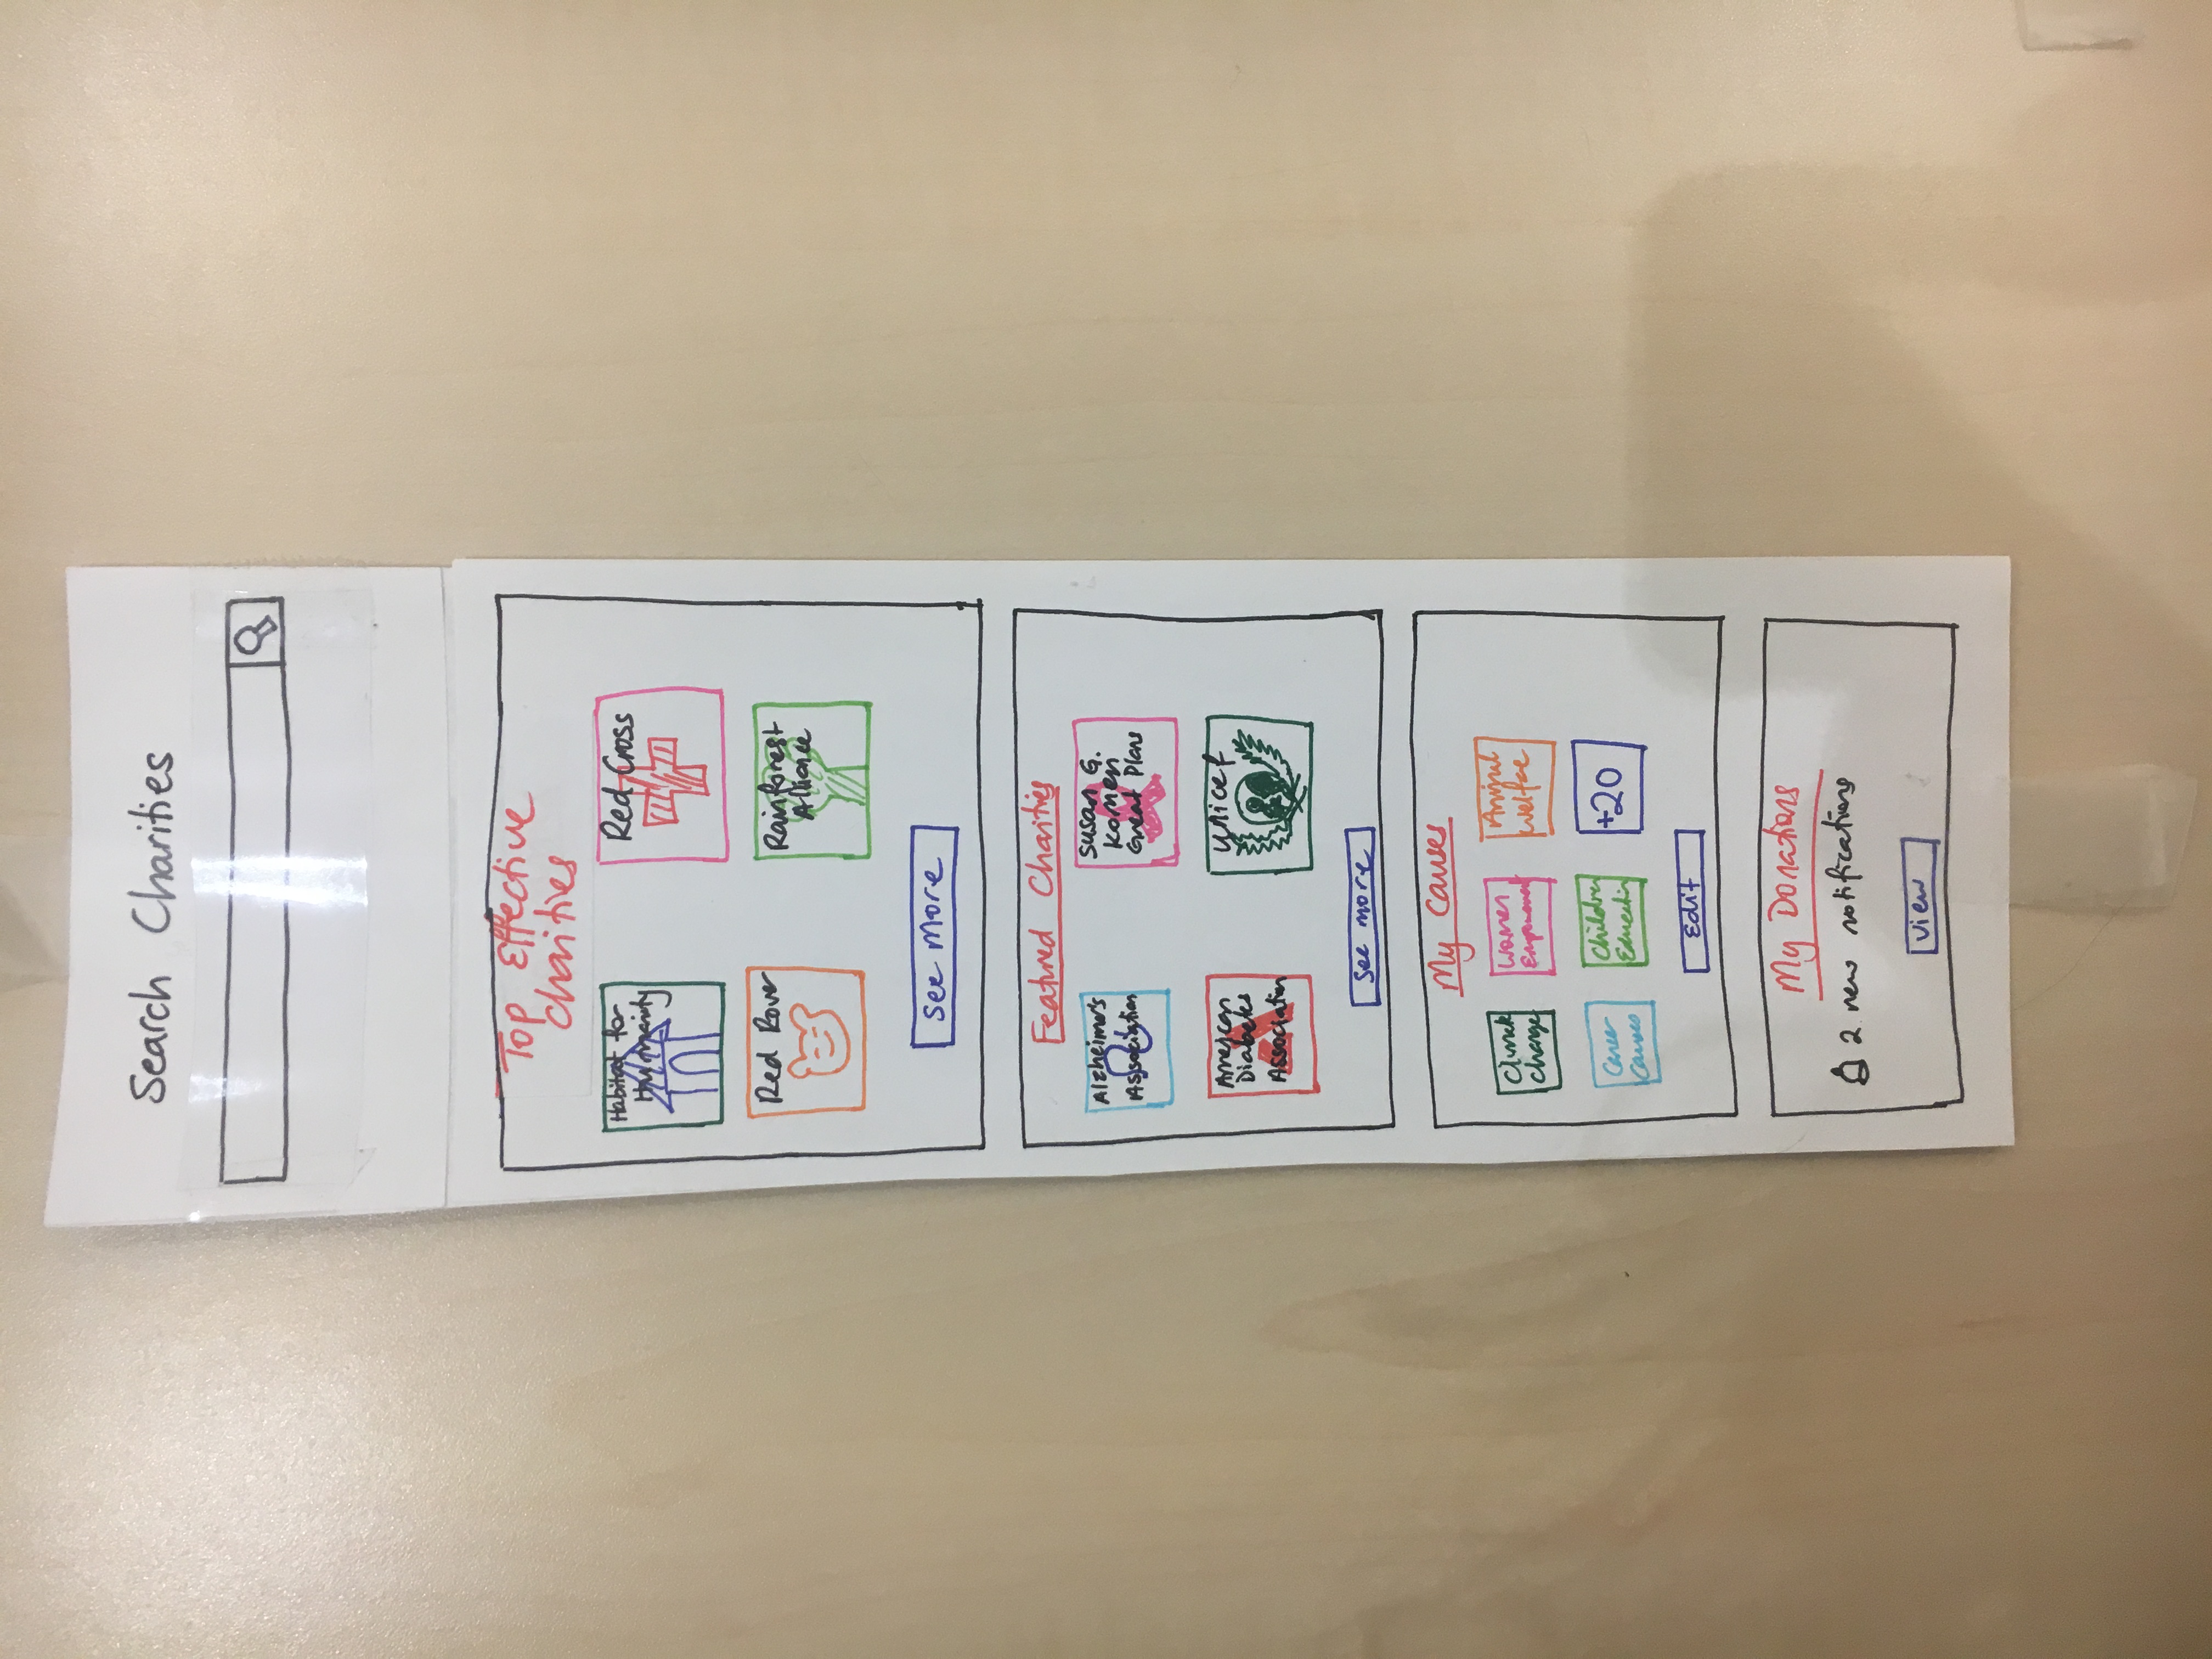 Search Charities
Top Effective
Chaities
Habitat for
Humanity
Red Cross
Red Rover
Rainforest
Alliance
See More
Featured Charities
Alzheimer's
Association
Susan G.
Komen
Great Plans
American
Diabetes
Association
Unicef
See more
My Causes
Climate
Change
Women
Empowerment
Animal
Welfare
Cancer
Causes
Children
Education
+20
Edit
My Donations
2 new notifications
View